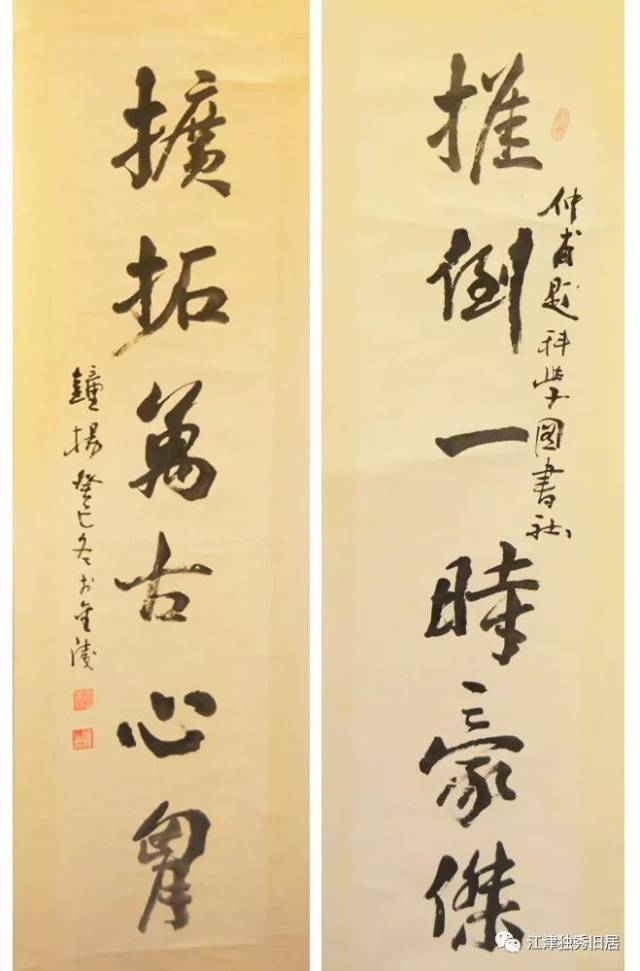 推倒一時豪傑
仲甫题科学图書社
擴拓萬古心胸
鐘揚癸巳冬于金陵
江津独秀旧居